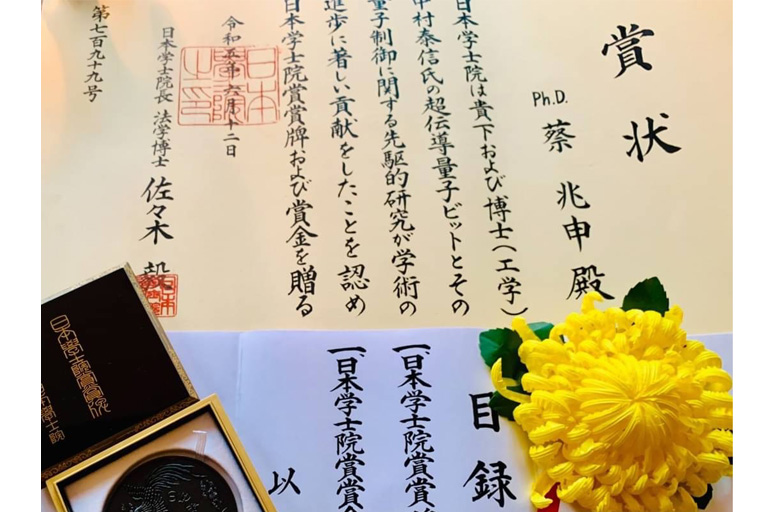 賞状
Ph.D. 蔡兆申殿
日本学士院は貴下および博士(工学)
中村泰信氏の超伝導量子ビットとその
量子制御に関する先駆的研究が学術の
進歩に著しい貢献をしたことを認め
日本学士院賞賞牌および賞金を贈る
令和五年六月十二日
日本学士院長 法学博士 佐々木 毅
第七百九十九号
目録
一、日本学士院賞賞
一、日本学士院賞賞金
以
日本学士院賞賞牌
日本学士院